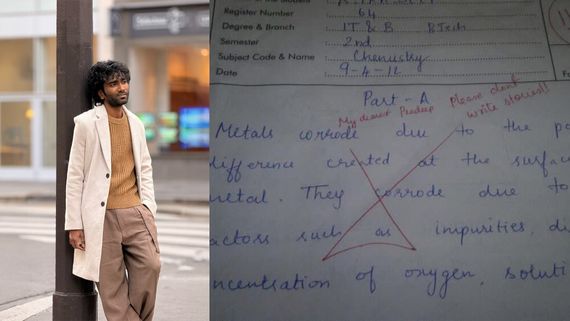 Register Number 64
Degree & Branch IT & B BTech
Semester 2nd
Subject Code & Name Chemistry
Date 9-4-12
Part - A
My dearest
Please don't
write stories!!
Metals corrode due to the
difference created at the
metal. They corrode due to
such as impurities,
of oxygen,